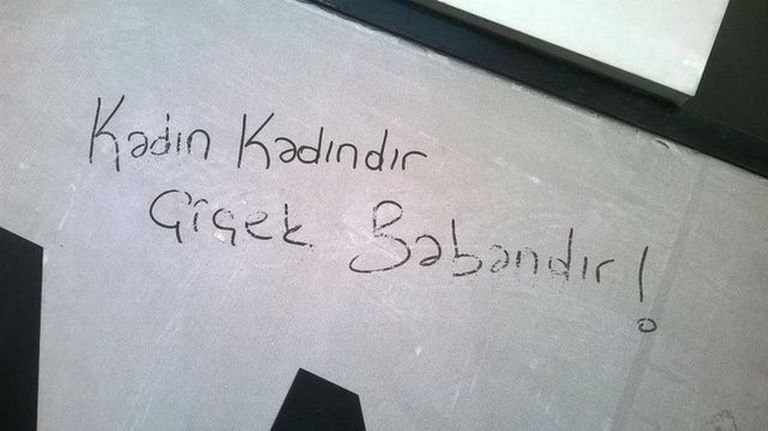 Kadın Kadındır
Çiçek Babandır!